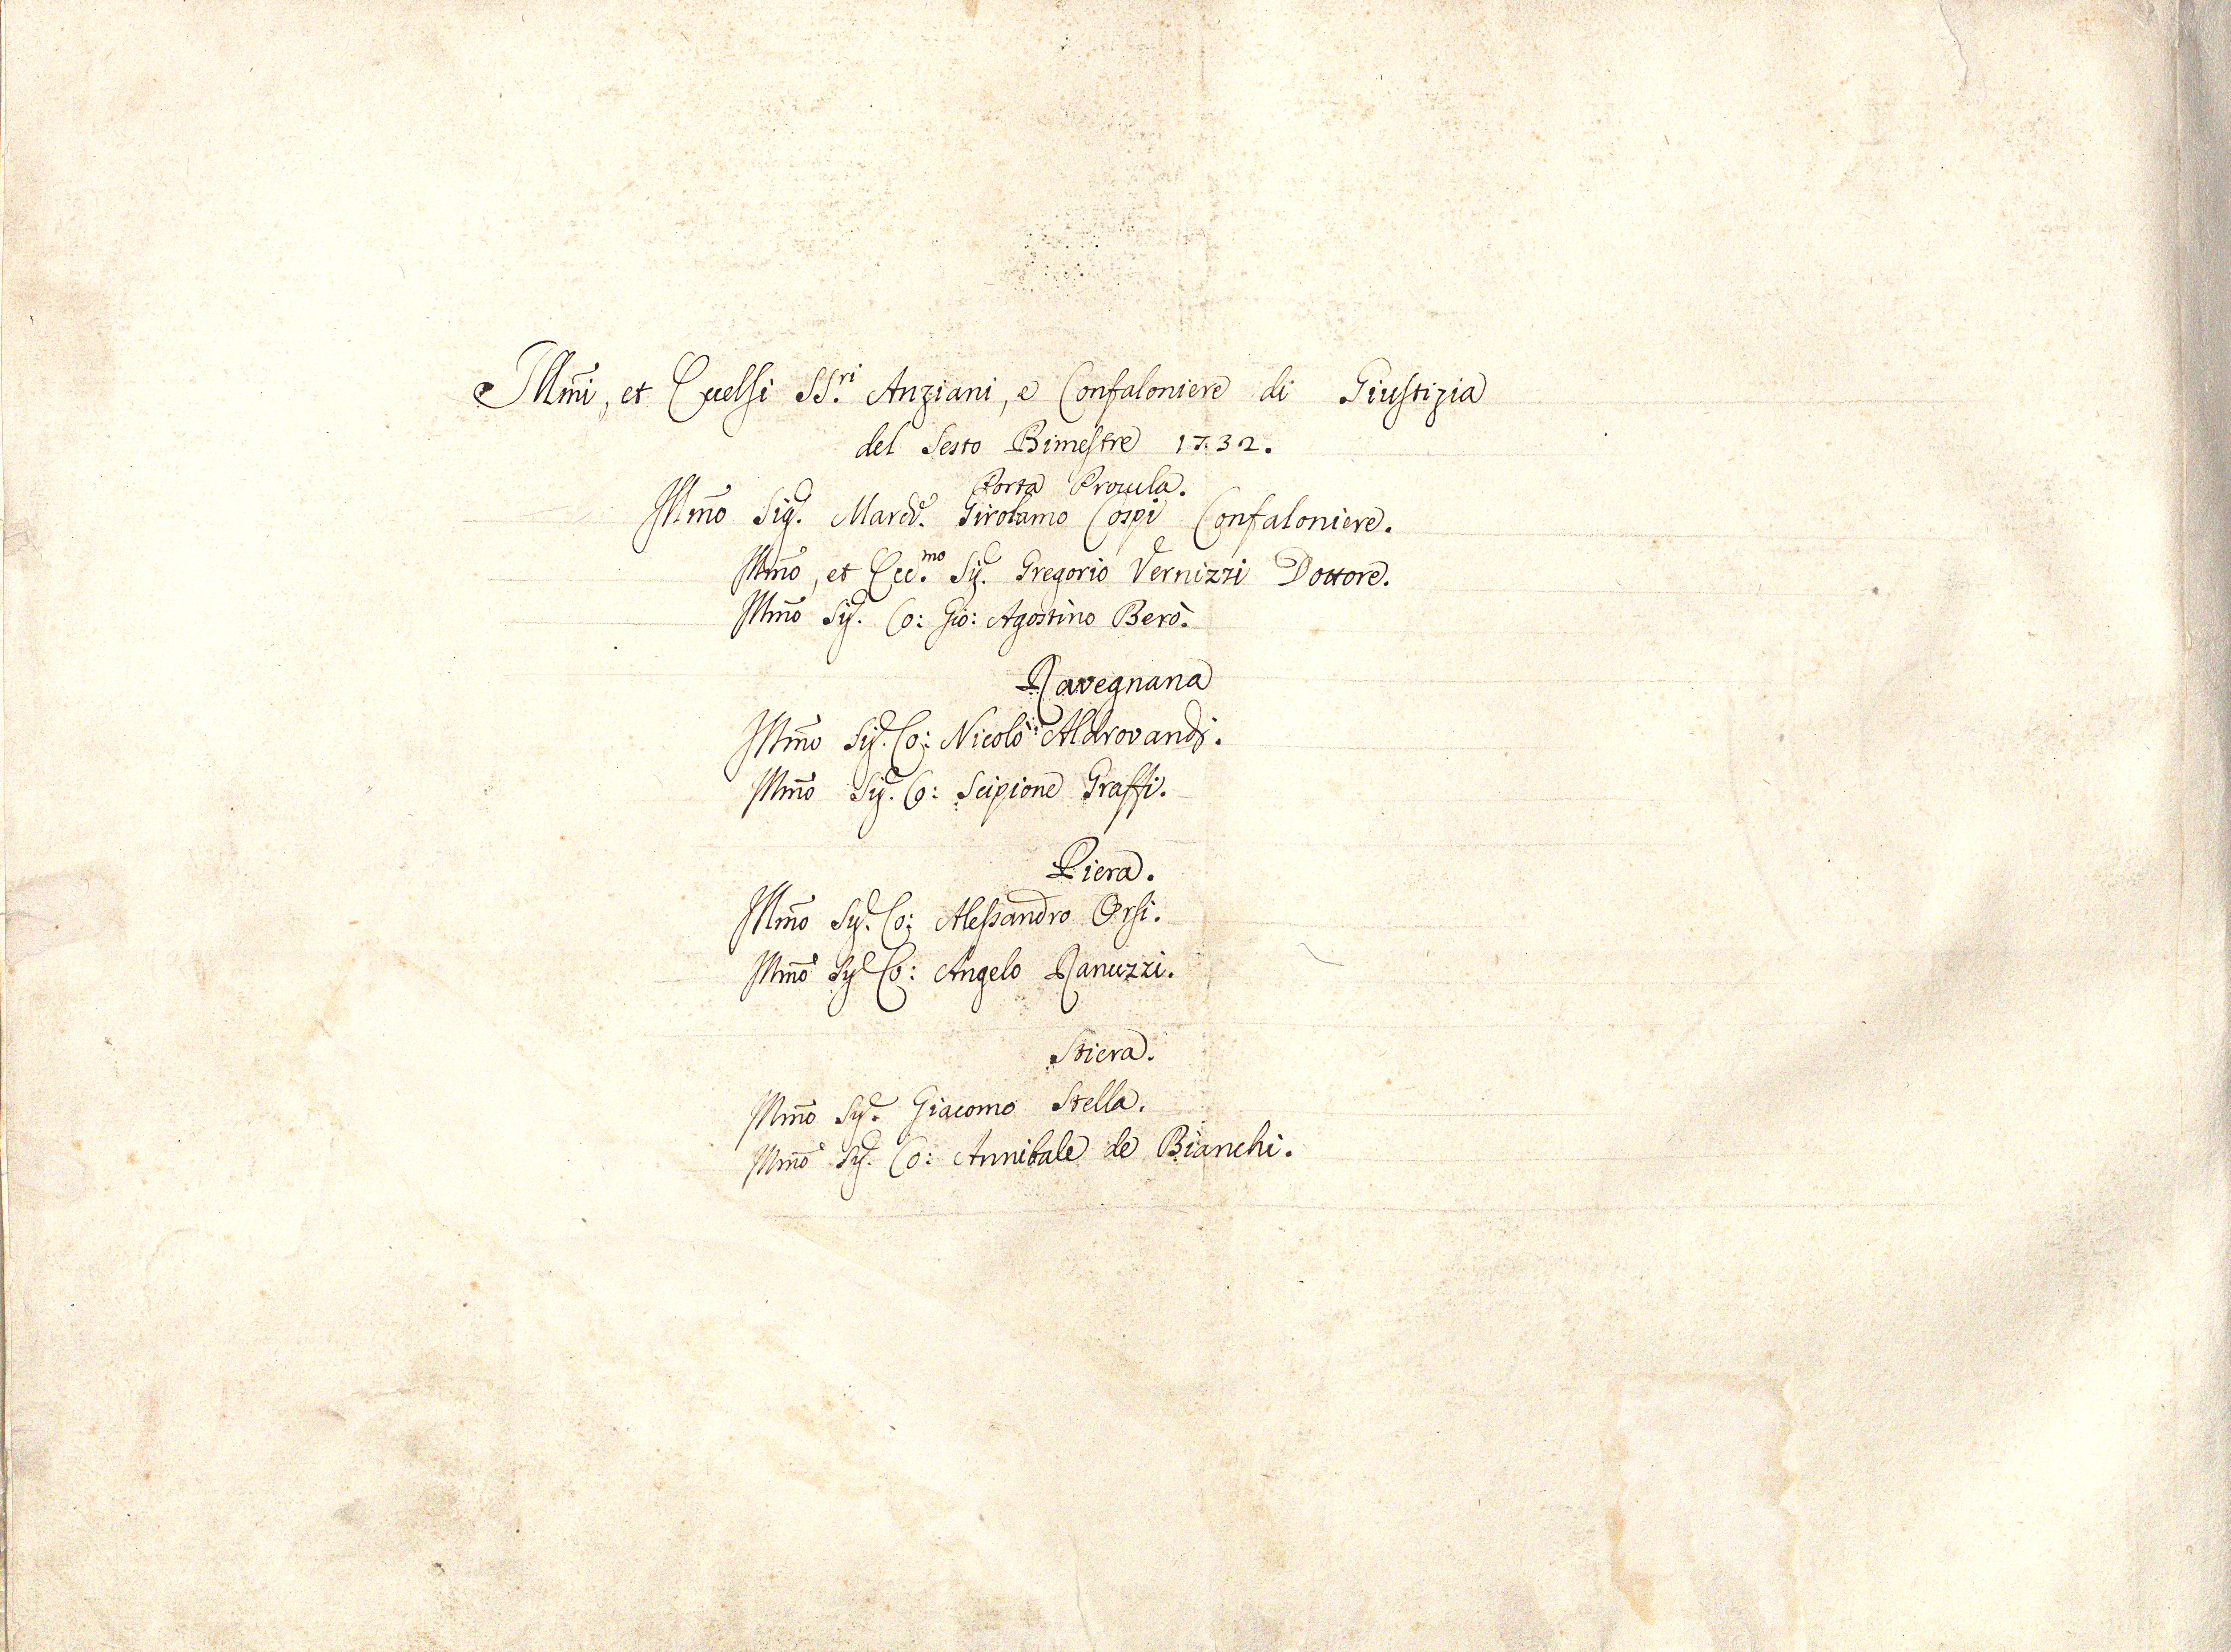 Ill͞mi, et Eccelsi SS.ri Anziani, e Confaloniere di Giustizia
del Sesto Bimestre 1732.
Porta Procula.
Ill͞mo Sig.e March.e Girolamo Cospi Confaloniere.
Ill͞mo, et Ecc.mo Sig.e Gregorio Vernizzi Dottore.
Ill͞mo Sig.e Co: Gio: Agostino Berò.
Ravegnana
Ill͞mo Sig.e Co: Nicolò Aldrovandi.
Ill͞mo Sig.e Co: Scipione Graffi.
Piera.
Ill͞mo Sig.e Co: Alessandro Orsi.
Ill͞mo Sig.e Co: Angelo Ranuzzi.
Stiera.
Ill͞mo Sig.e Giacomo Stella.
Ill͞mo Sig.e Co: Annibale de Bianchi.